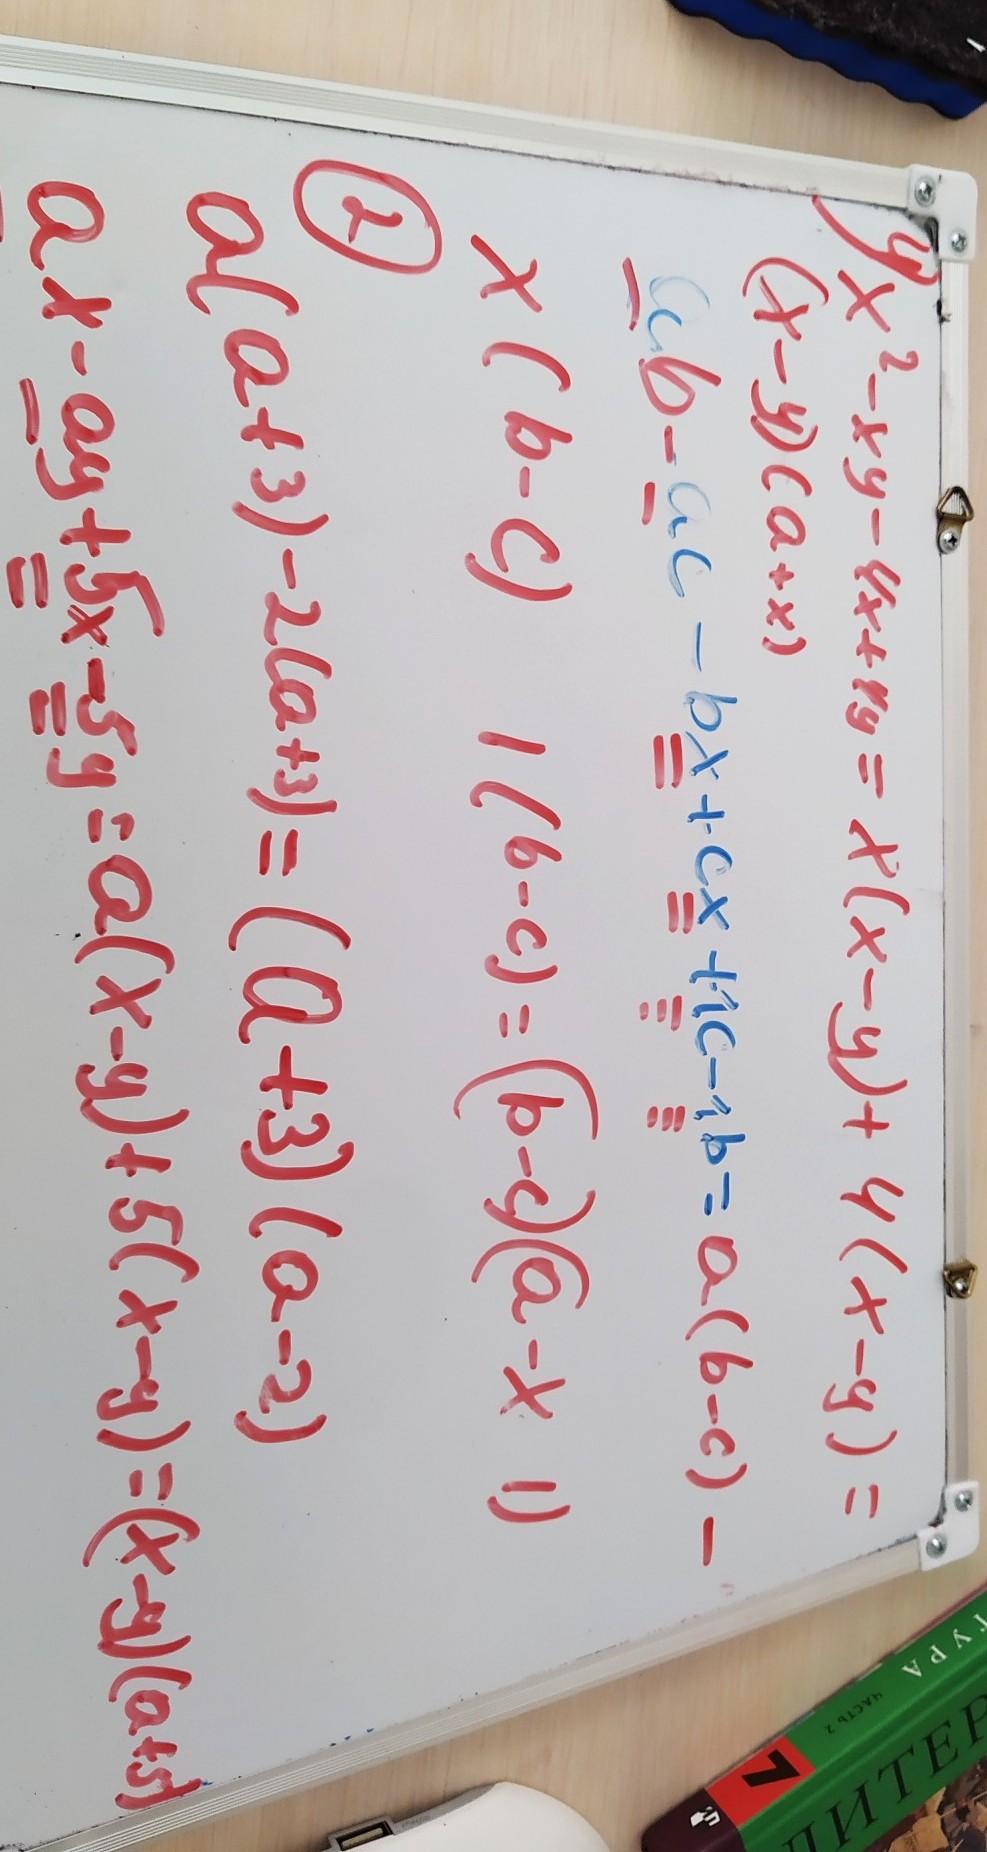 4) x² - xy - 4x + 4y = x(x-y) + 4(x-y) =
(x-y)(a+x)
ab - ac - bx + cx + 1c - 1b = a(b-c) -
x(b-c) 1(b-c) = (b-c)(a-x 1)
2
a(a+3) - 2(a+3) = (a+3)(a-2)
ax - ay + 5x - 5y = a(x-y) + 5(x-y) = (x-y)(a+5)
ЧАСТЬ 2
7